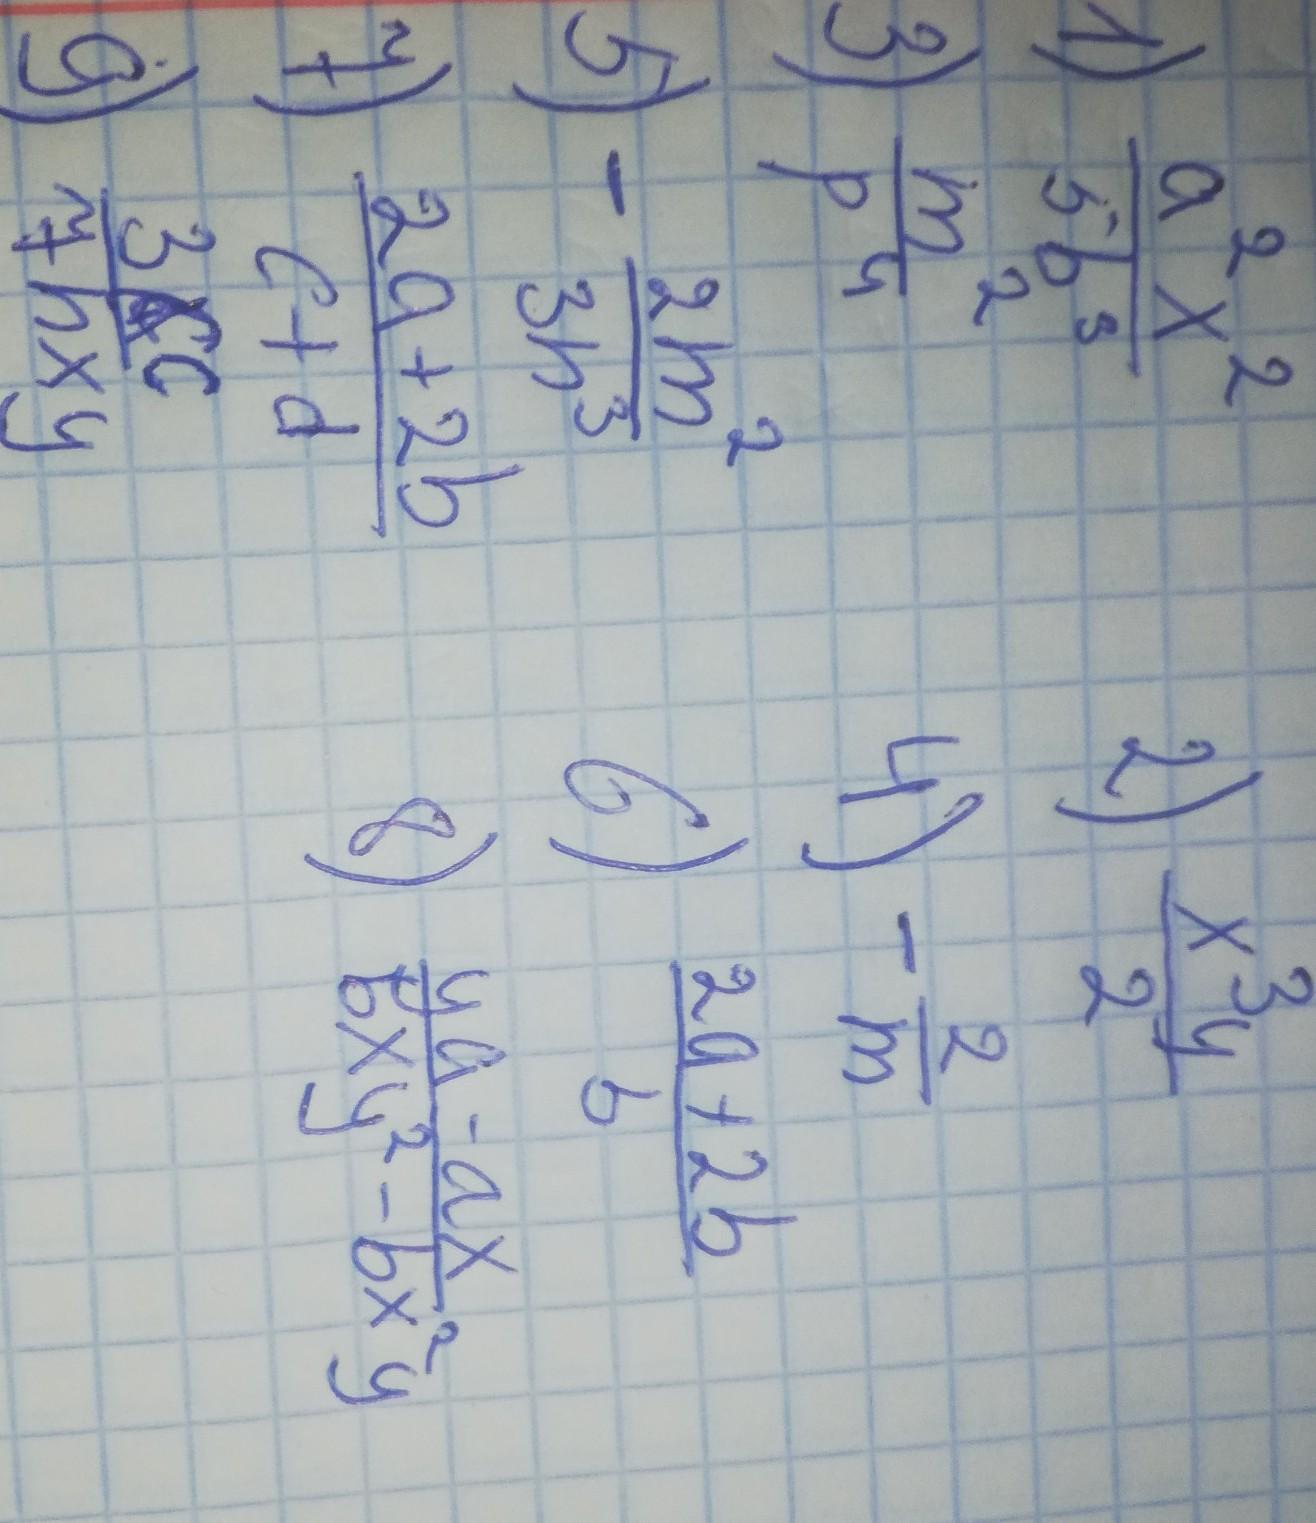 1) a²x² / 5b³ 2) x³y / 2
3) m² / p⁴ 4) - 2 / m
5) - 2m² / 3n³ 6) 2a+2b / b
7) 2a+2b / c+d 8) ya-ax / bxy²-bx²y
9) 3c / 7nxy